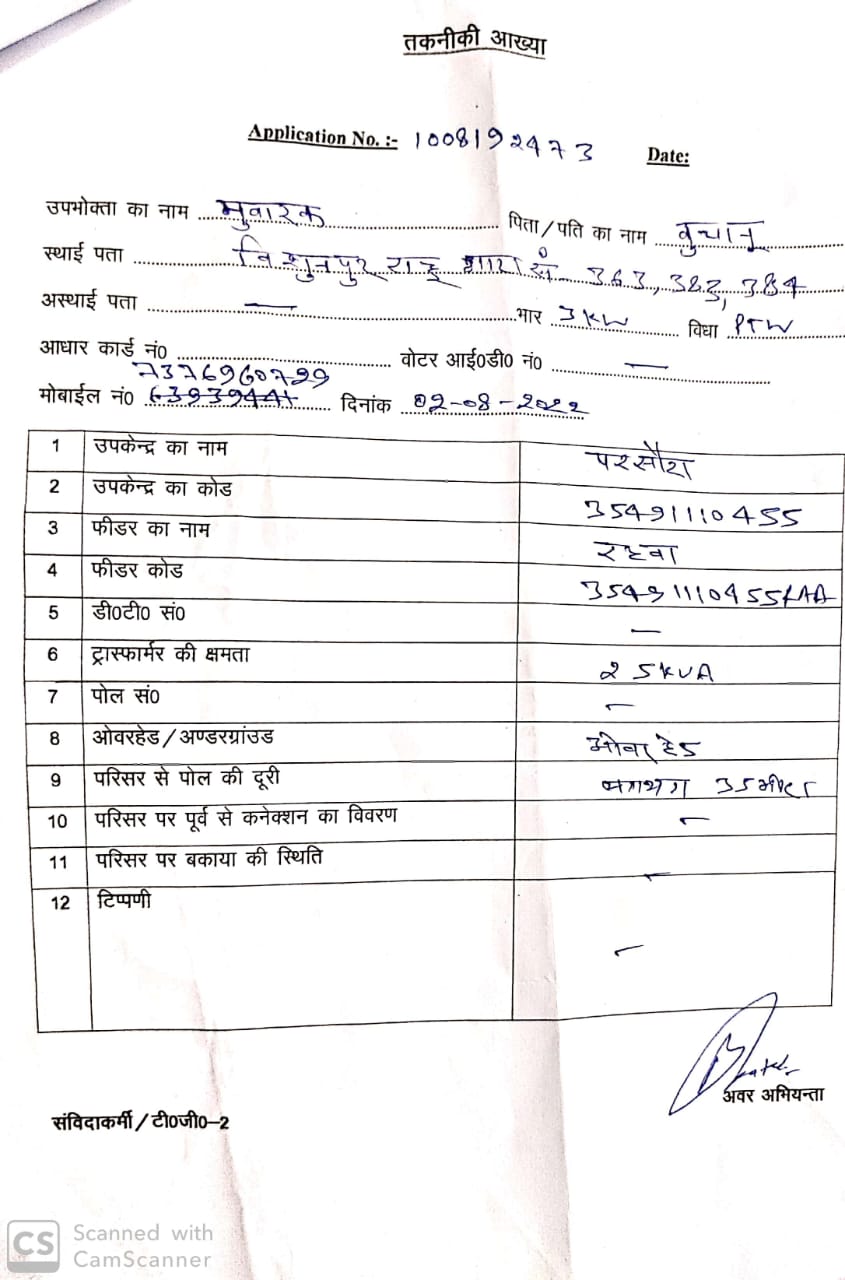 तकनीकी आख्या
Application No. :- 1008192473 Date:
उपभोक्ता का नाम मुवारक पिता/पति का नाम वुचानू
स्थाई पता विशुनपुर राजू गाटा सं 363, 383, 384
अस्थाई पता — भार 3 KW विधा PTW
आधार कार्ड नं0 वोटर आई0डी0 नं0 —
7376960729
मोबाईल नं0 दिनांक 02-08-2022
1 उपकेन्द्र का नाम परसौरा
2 उपकेन्द्र का कोड 35491110455
3 फीडर का नाम
4 फीडर कोड
5 डी0टी0 सं0 —
6 ट्रास्फार्मर की क्षमता 25KVA
7 पोल सं0 —
8 ओवरहेड/अण्डरग्रांउड ओवर हेड
9 परिसर से पोल की दूरी लगभग 35 मीटर
10 परिसर पर पूर्व से कनेक्शन का विवरण —
11 परिसर पर बकाया की स्थिति —
12 टिप्पणी —
अवर अभियन्ता
संविदाकर्मी/टी0जी0–2
CS Scanned with
CamScanner